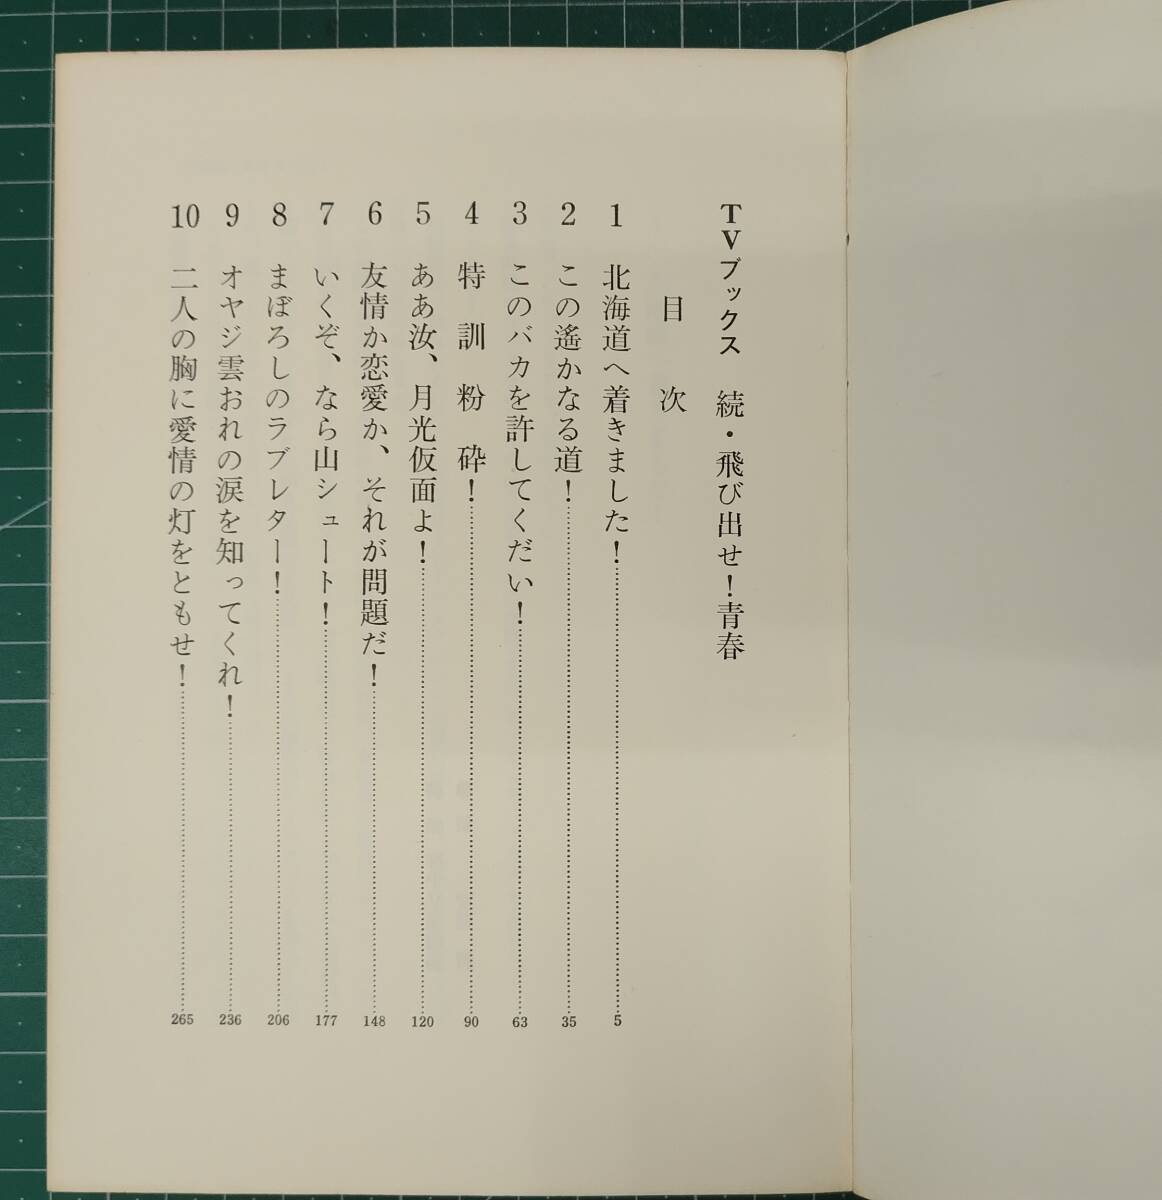 TVブックス 続・飛び出せ！青春
目次
1 北海道へ着きました！ 5
2 この遙かなる道！ 35
3 このバカを許してくだい！ 63
4 特訓粉砕！ 90
5 ああ汝、月光仮面よ！ 120
6 友情か恋愛か、それが問題だ！ 148
7 いくぞ、なら山シュート！ 177
8 まぼろしのラブレター！ 206
9 オヤジ雲おれの涙を知ってくれ！ 236
10 二人の胸に愛情の灯をともせ！ 265